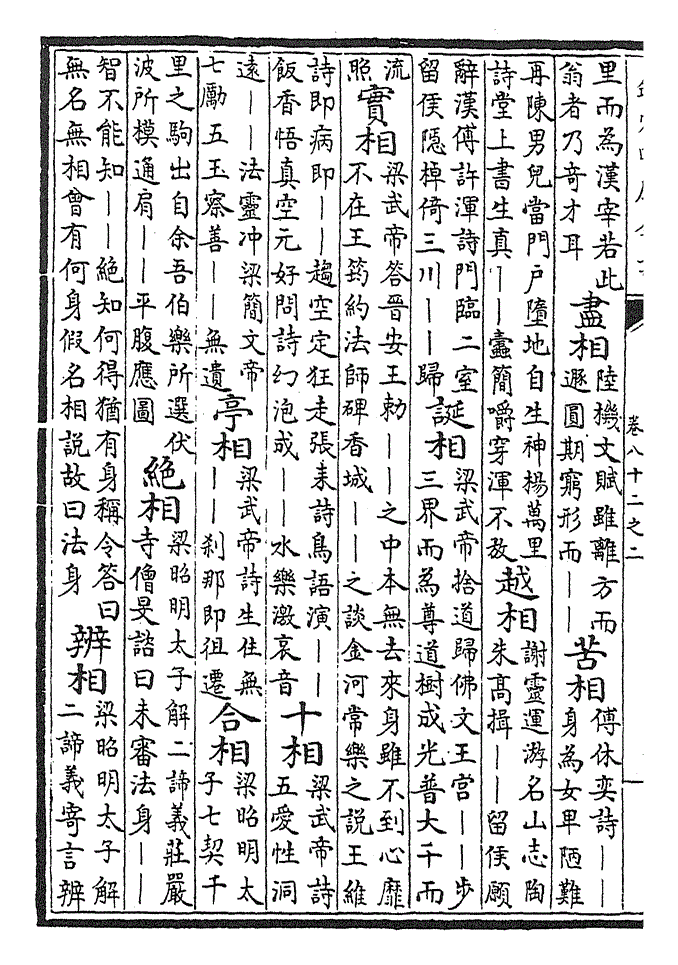 卷八十二之二
里而為漢宰若此
翁者乃奇才耳
盡相
陸機文賦雖離方而
遯圓期窮形而——
苦相
傅休奕詩——
身為女卑陋難
再陳男兒當門戶墮地自生神楊萬里
詩堂上書生真——蠹簡嚼穿渾不放
越相
謝靈運游名山志陶
朱高揖——留侯願
辭漢傅許渾詩門臨二室
留侯隱棹倚三川——歸
誕相
梁武帝捨道歸佛文王宮——步
三界而為尊道樹成光普大千而
流
照
實相
梁武帝答晉安王勅——之中本無去來身雖不到心靡
不在王筠約法師碑香城——之談金河常樂之說王維
詩即病即——趨空定狂走張耒詩鳥語演——
飯香悟真空元好問詩幻泡成——水樂激哀音
十相
梁武帝詩
五愛性洞
遠——法靈冲梁簡文帝
七勵五玉察善——無遺
亭相
梁武帝詩生住無
——刹那即徂遷
合相
梁昭明太
子七契千
里之駒出自余吾伯樂所選伏
波所模通肩——平腹應圖
絶相
梁昭明太子解二諦義莊嚴
寺僧旻諮曰未審法身——
智不能知——絶知何得猶有身稱令答曰
無名無相曾有何身假名相說故曰法身
辨相
梁昭明太子解
二諦義寄言辨